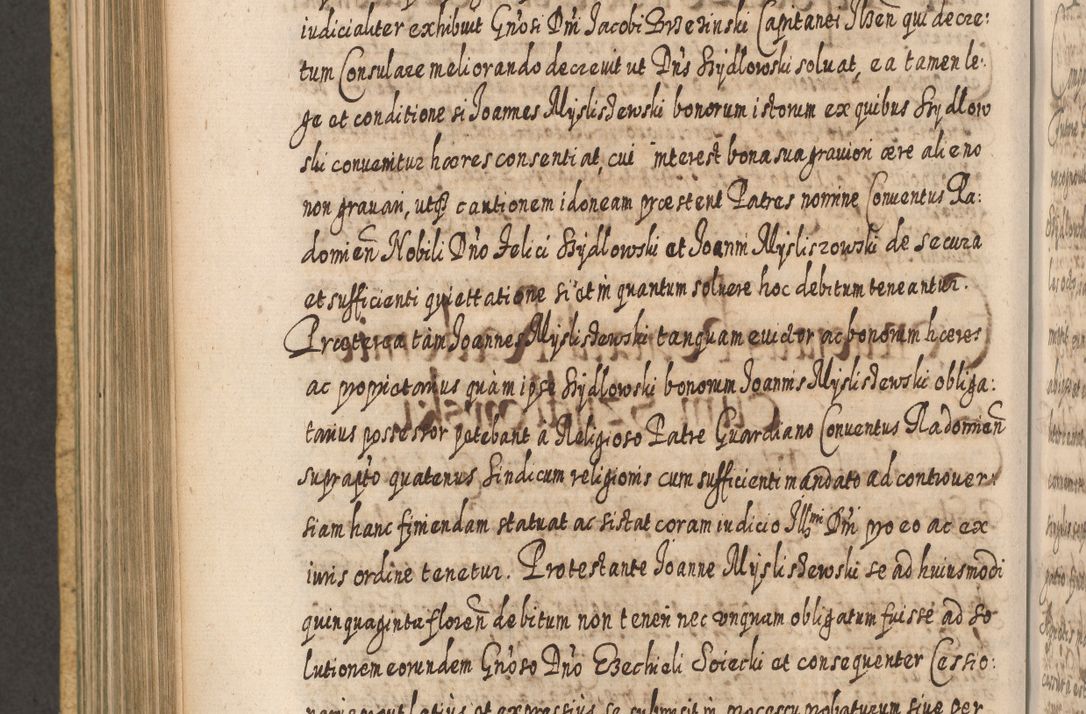 iudicialiter exhibuit Gn̄osi Dn̄i Jacobi Brzezinski Capitanei Ilzen̄ qui decre:
tum Consulare meliorando decreuit ut Dn̄s Szydlowski soluat, ea tamen le:
ge et conditione si Joannes Myśliszewski bonorum istorum ex quibus Szydlow
ski conuenitur hæres consentiat, cui interest bona sua grauiori ære alieno
non grauari, utq̃ cautionem idoneam præstent Patres nomine Conuentus Ra:
domien̄ Nobili Dn̄o Felici Szydlowski et Joanni Mysliszowski de secura
et sufficienti quiettatione si et in quantum soluere hoc debitum teneantur.
Præterea tàm Joannes Myśliszewski tanquam euictor ac bonorum hæres
ac proprietarius quàm ipse Szydlowski bonorum Joannis Myśliszewski obliga:
tarius possessor petebant a Religioso Patre Guardiano Conuentus Radomien̄
suprapto quatenus Sindicum religionis cum sufficienti mandato ad controuer
siam hanc finiendam statuat ac sistat coram iudicio Illmi Dn̄i pro eo ac ex
iuris ordine tenetur. Protestante Joanne Mysliszewski se ad huiusmodi
quinquaginta floren̄ debitum non teneri nec vnquam obligatum fuisse ad so
lutionem eorundem Gn̄oso Dn̄o Ezechieli Sciecki et consequenter Cessio:
latius et expressius se submisit in processu probaturum siue per